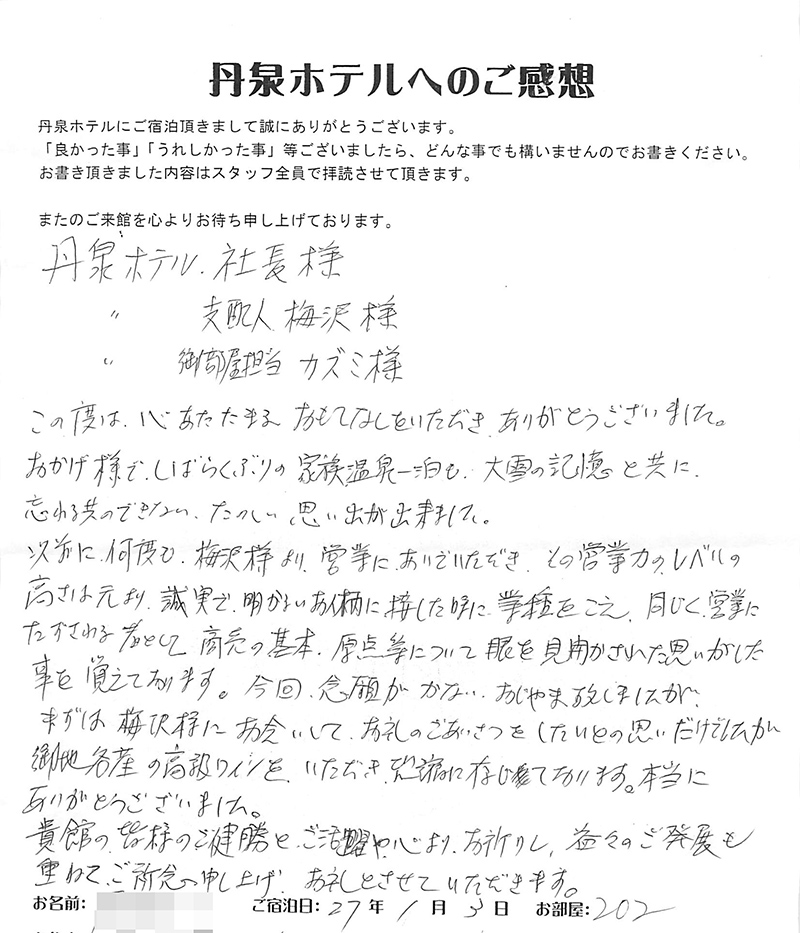 丹泉ホテルへのご感想
丹泉ホテルにご宿泊頂きまして誠にありがとうございます。
「良かった事」「うれしかった事」等ございましたら、どんな事でも構いませんのでお書きください。
お書き頂きました内容はスタッフ全員で拝読させて頂きます。
またのご来館を心よりお待ち申し上げております。
丹泉ホテル.社長様
〃 支配人 梅沢様
〃 御部屋担当 カズミ様
この度は、心あたたまる おもてなしをいただき、ありがとうございました。
おかげ様で、しばらくぶりの 家族温泉一泊も、大雪の記憶と共に、
忘れる共のできない、たのしい 思い出が出来ました。
以前に、何度も、梅沢様より、営業に、おいでいただき、その営業力の、レベルの
高さは元より、誠実で、明かるいお人柄に接した時に、業種をこえ、同じく、営業に
たずさわる 者として 商売の基本、原点等について 眼を見開かされた思いがした
事を 覚えております。今回、念願が かない、おじゃま致しましたが、
まずは 梅沢様に お会いして、お礼のごあいさつを したいとの思いだけでしたが
御地名産の高級ワインを、いただき、恐縮に存じております。本当に
ありがとうございました。
貴館の皆様のご健勝と、ご活躍や、心より、お祈りし、益々のご発展も
重ねて、ご祈念申し上げ、お礼とさせていただきます。
お名前: ご宿泊日: 27年 1月 3日 お部屋: 202